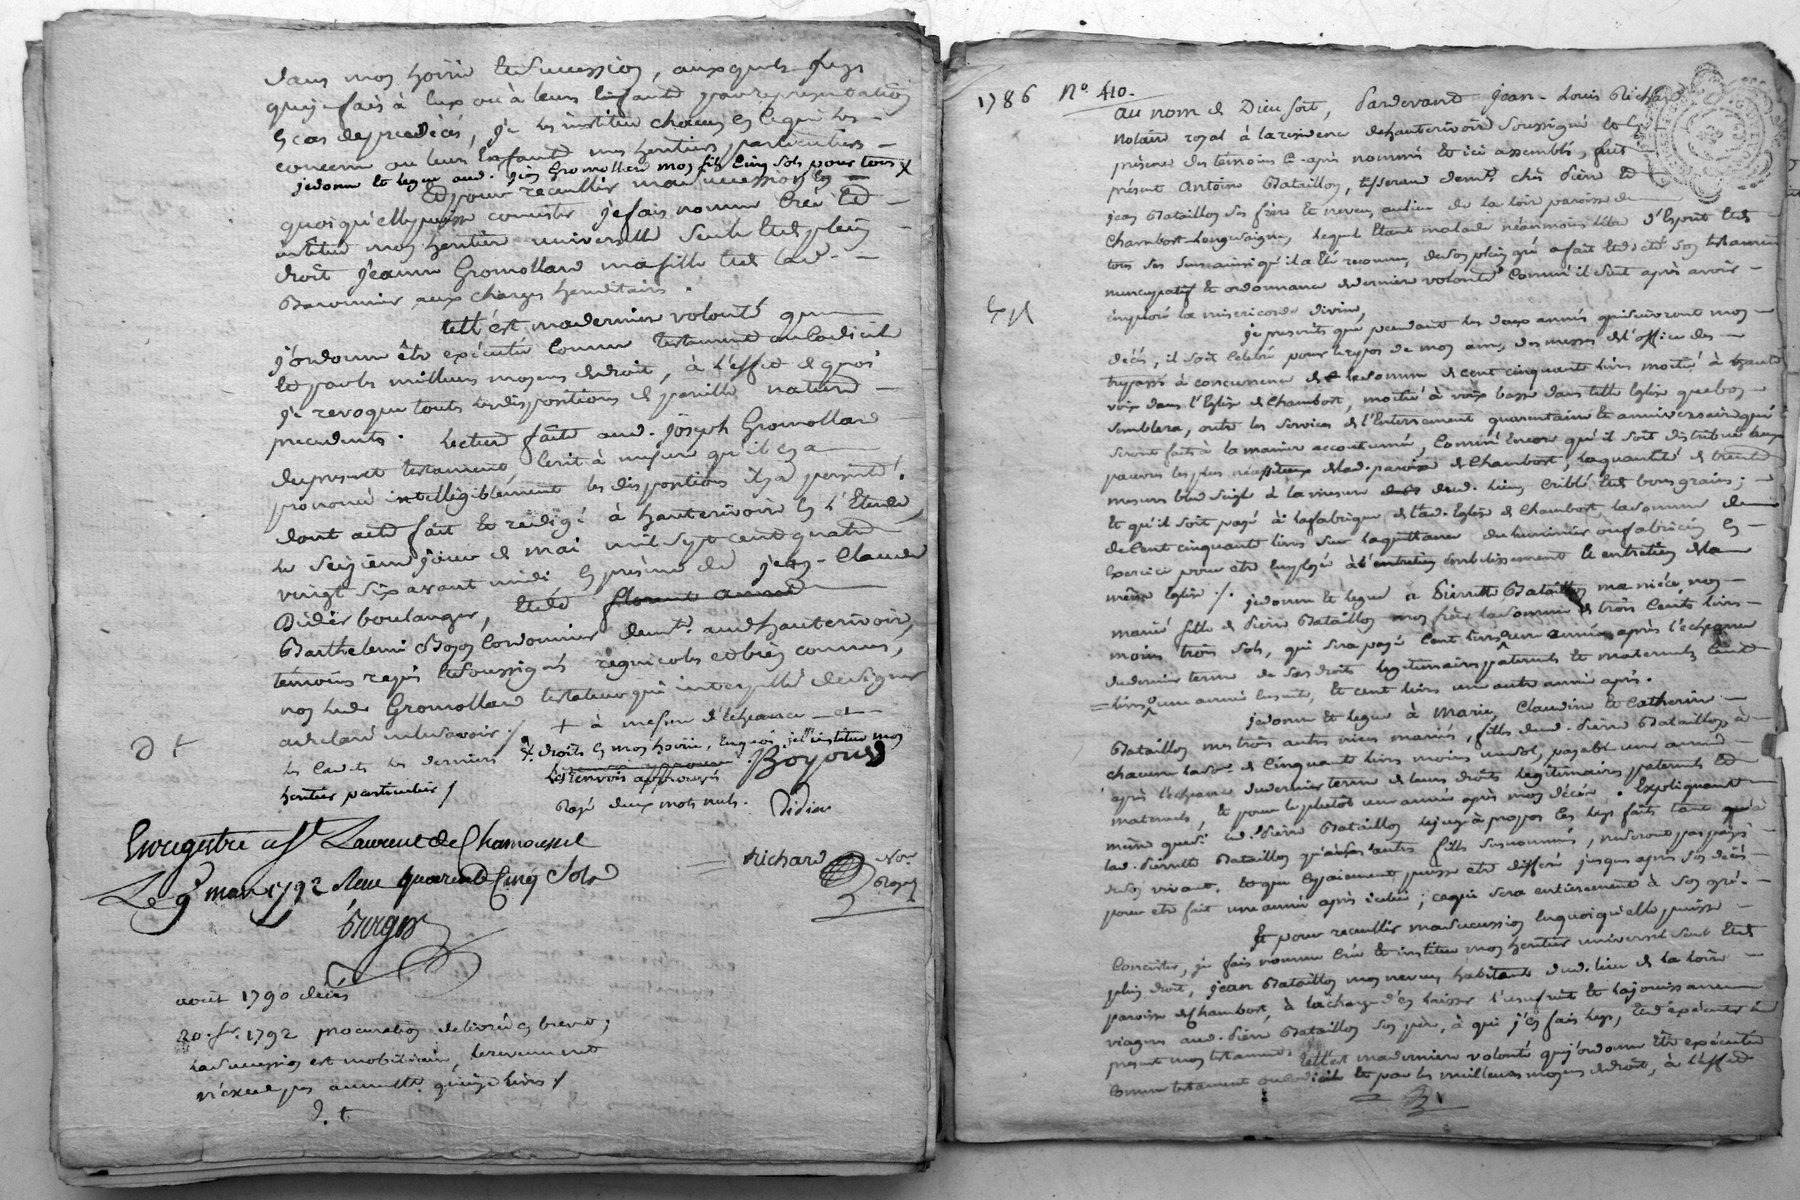 dans mon hoirie et succession, auxquels legs
que je fais à eux ou à leurs enfants par représentation
en cas de prédécès, je les institue chacun en ce qui les
concerne ou leurs enfants mes héritiers particuliers
je donne et legue aud. jean Gromollard mon fils cinq sols pour tous x
Et pour recueillir ma succession en
quoi qu'elle puisse consister je fais nomme Crée Et
institue mon heritiere universelle seule Et de plein
droit jeanne Gromollard ma fille
aux charges hereditaires.
telle est ma derniere volonté que
j'ordonne être exécutée comme testament ou Codicile
Et par les meilleurs moyens de droit, à l'effet de quoi
je revoque toutes les dispositions de pareille nature
precedentes. Lecture faite aud. joseph Gromollard
du present testament Ecrit à mesure qu'il en a
prononcé intelligiblement les dispositions il y a persisté!
dont acte fait Et rédigé à hauterivoire En l'Etude,
le seizieme jour de mai mil sept cent quatre
vingt six avant midi En presence de jean-Claude
Didier boulanger, Et de
Barthelemi Bozon Cordonnier demt. aud hauterivoire,
témoins requis Et soussignés regnicoles Et bien connus,
non led. Gromollard testateur qui interpellé de signer
a declaré ne le savoir /.
+ à mesure d'échéance et
les Cadets les derniers +. droits en mon hoirie, En quoi je l'institue mon
heritier particulier / les renvois approuvés Boyoud
Rayé deux mots nuls. Didier
D t
Enregistré a St Laurent de Chamousset
Le 9 mars 1792 Reçu quarante Cinq Sols
Richard Nore Royal
août 1790 décès
20. fer. 1792 procuration delivrée en brevet;
La succession est mobiliaire, le revenu net
n'excede pas annuellt. quinze livres /
D. t
1786 No. 410.
Au nom de Dieu soit, Pardevant Jean-Louis Richard
Notaire royal à la résidence de hauterivoire soussigné et En
présence des témoins Ci-après nommés Et ici assemblés, fut
présent Antoine Bataillon, tisserand demt. chés Pierre Et
jean Bataillon ses frère Et neveu au lieu de la Loire paroisse de
Chambost-Longessaigne, lequel Etant malade néanmoins libre d'Esprit Et de
tous ses sens ainsi qu'il a Eté reconnu, de son plein gré a fait Et dicté son testament
nuncupatif Et ordonnance de derniere volonté Comme il suit après avoir
imploré la misericorde divine,
je prescris que pendant les deux années qui suivront mon
décès, il soit Celebré pour le repos de mon ame, des messes de l'office des
trepassés à concurrence de la somme de cent cinquante livres moitié à haute
voix dans l'Eglise de Chambost, moitié à voix basse dans telle Eglise que bon
semblera, outre les services de l'Enterrement quarantaine Et anniversaire qui
seront faits à la manière accoutumée, Comme Encore qu'il soit distribué aux
pauvres les plus nécessiteux de lad. paroisse de Chambost, la quantité de trente
mesures bled seigle à la mesure dud. Lieu, criblé Et de bons grains;
Et qu'il soit payé à la fabrique de lad. Eglise de Chambost, la somme
de Cent cinquante livres sur la quittance du luminier ou fabricien En
Exercice pour etre Employée à l'embelissement Et entretien de la
même Eglise /. je donne Et legue à Pierrette Bataillon ma niéce non
mariée fille de Pierre Bataillon mon frère la somme de trois Cents livres
moins trois sols, qui sera payée Cent livres une année après l'échéance
du dernier terme de ses droits legitimaires paternels Et maternels, Cent
livres une année Ensuite, Et cent livres une autre année après.
je donne Et legue à Marie, Claudine Et Catherine
Bataillon mes trois autres nieces mariées, filles dud. Pierre Bataillon, à
chacune la so. de Cinquante livres moins un sol, payable une année
après l'échéance du dernier terme de leurs droits legitimaires paternels Et
maternels, Et pour le plutôt une année après mon décès. Expliquant
même que si led. Pierre Bataillon juge à propos les legs faits tant à
lad. Pierrette Bataillon qu'à ses autres filles susnommées, ne seront pas payés
de son vivant, Et que le paiement puisse etre differé jusques après son décès
pour etre fait une année après icelui; ce qui sera entierement à son gré.
Et pour recueillir ma succession En quoi qu'elle puisse
Consister, je fais nomme Crée Et institue mon heritier universel seul Et de
plein droit, jean Bataillon mon neveu habitant dud. lieu de la Loire
paroisse de Chambost, à la charge d'en laisser l'usufruit Et la jouissance
viagere aud. Pierre Bataillon son père, à qui j'en fais legs, Et d'exécuter le
present mon testament. telle est ma derniere volonté que j'ordonne Etre exécutée
Comme testament ou codicile Et par les meilleurs moyens de droit, à l'effet